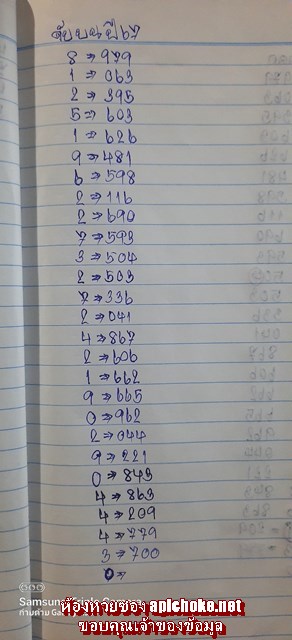 ดับบนปี67
8⇒979
1⇒063
2⇒395
5⇒603
1⇒626
9⇒481
6⇒598
2⇒116
2⇒690
7⇒593
3⇒504
2⇒503
7⇒336
2⇒041
4⇒867
2⇒606
1⇒662
9⇒665
0⇒962
2⇒044
9⇒221
0⇒843
4⇒863
4⇒209
4⇒779
3⇒700
0⇒
Samsung Triple Camera
ถ่ายด้วย Ga
ห้องหวยซอง apichoke.net
ขอบคุณเจ้าของข้อมูล